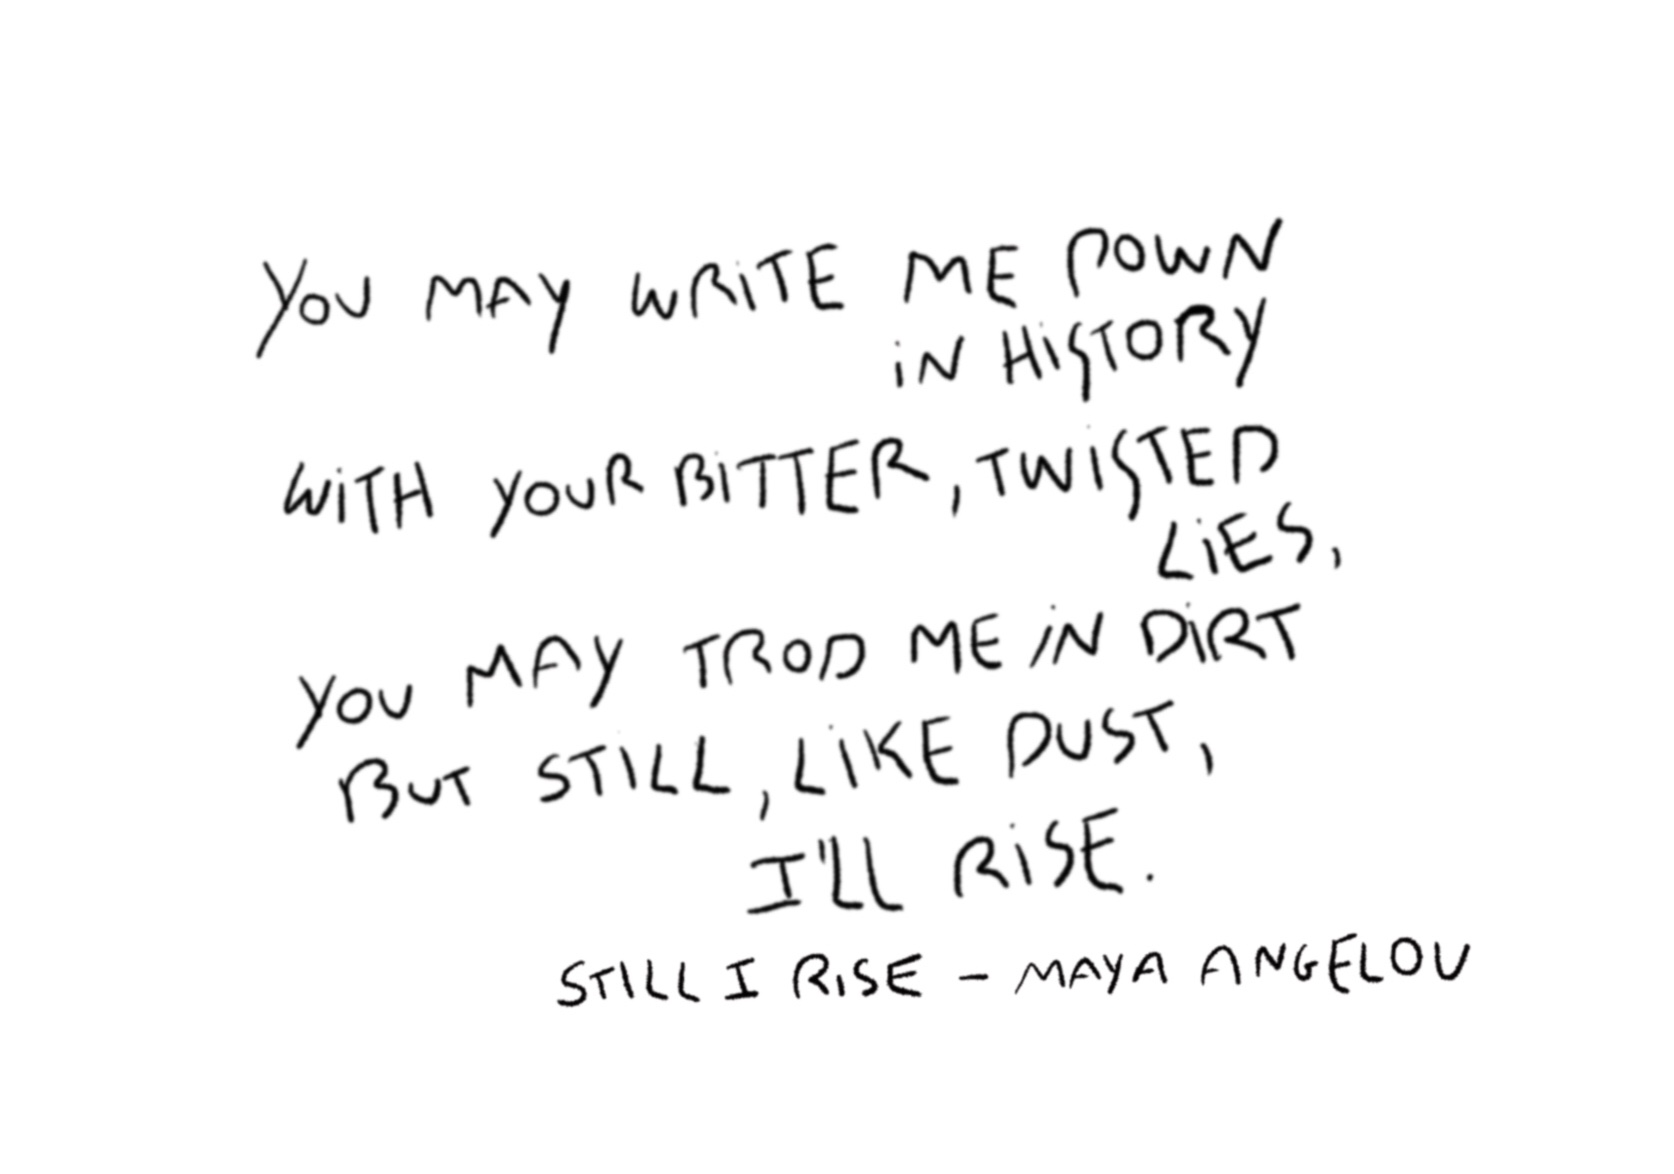 YOU MAY WRITE ME DOWN
IN HISTORY
WITH YOUR BITTER, TWISTED
LIES,
YOU MAY TROD ME IN DIRT
BUT STILL, LIKE DUST,
I'LL RISE.
STILL I RISE - MAYA ANGELOU